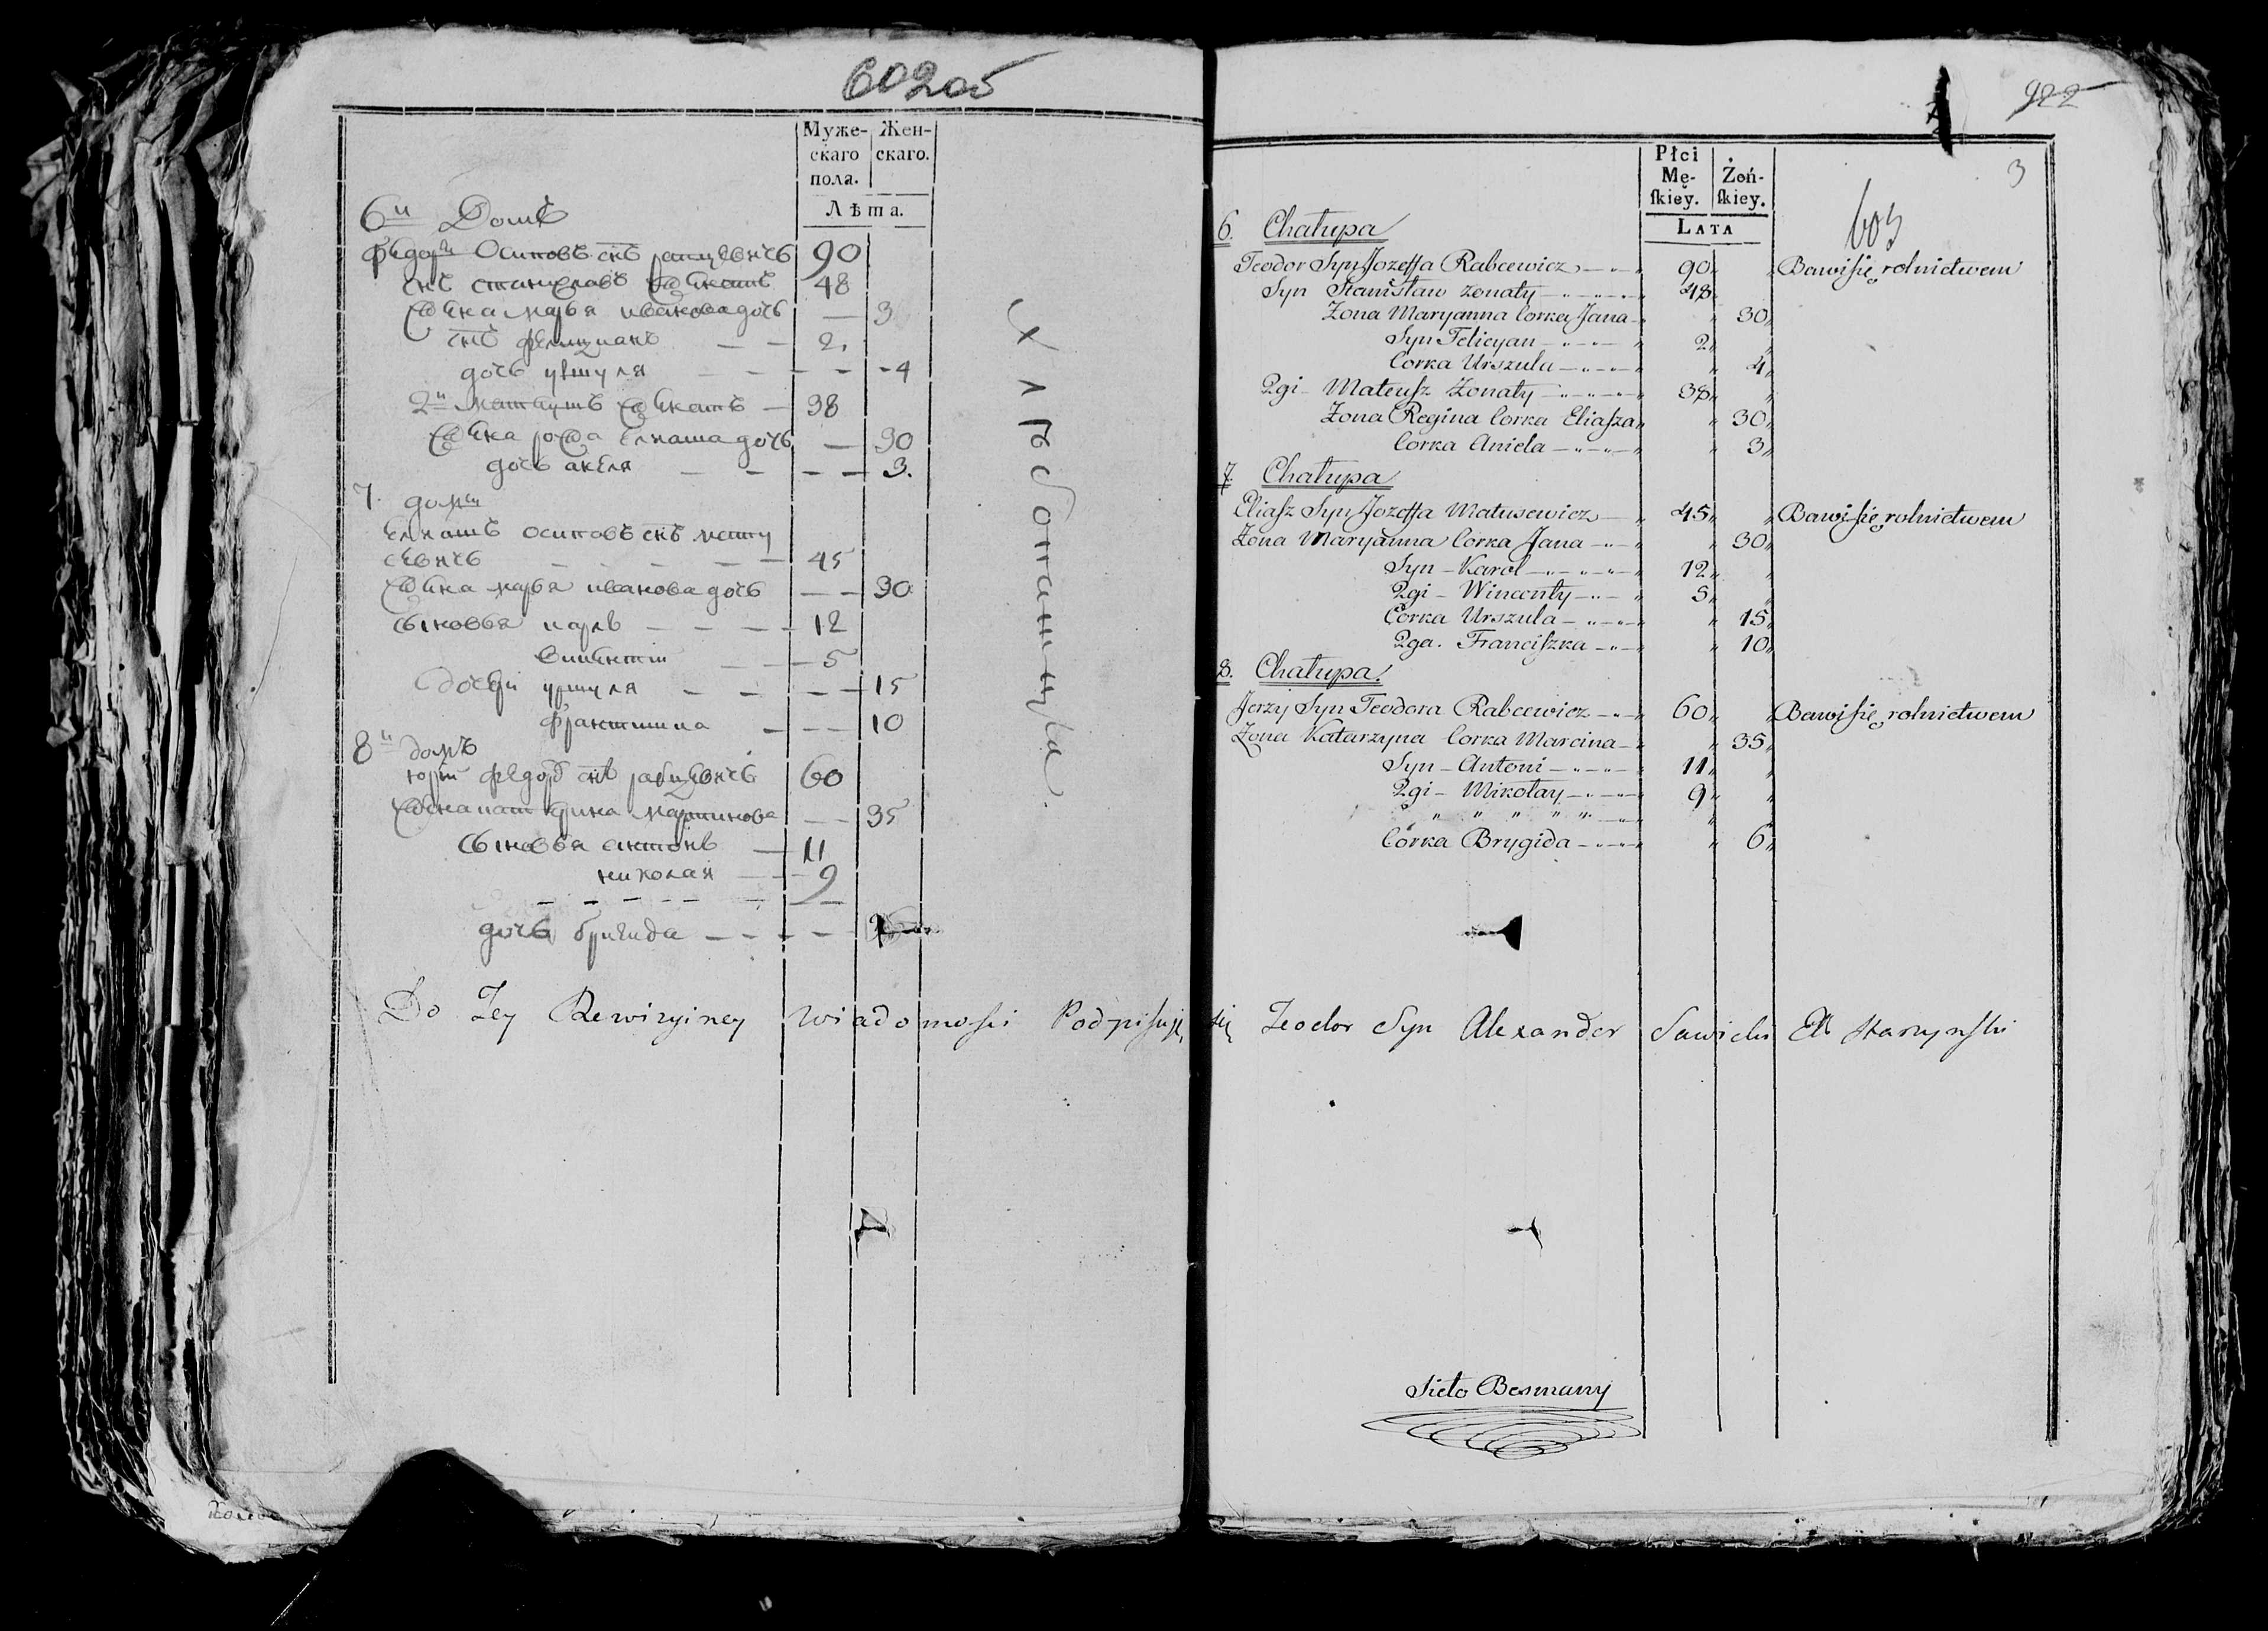 602об
Муже- Жен-
скаго скаго.
пола.
Лѣта.
6й Домъ
Федоръ Осиповъ снъ рапцевичъ 90
снъ станиславъ женатъ 48
жена марья иванова дочь — 3
снъ фелицианъ — — 2
дочь уршуля — — — — 4
2й матеушъ женатъ — 38
жена рожа елиаша дочь — 30
дочь анеля — — — — 3.
7. домъ
елиашъ осиповъ снъ мату
севичъ — — — — — 45
жена марья иванова дочь — — 30
сыновья карль — — — — 12
викентий — — — 5
дочери уршуля — — — — 15
франтишка — — — 10
8й домъ
юрий федор снъ рабцевичъ 60
жена катерина мартинова — — 35
сыновья антонъ — 11
николай — — 9
— — — — — — —
дочь бригида — — — —
хлѣбопашцы
922
3
603
Płci
Mę- Żoń-
skiey. skiey.
LATA
6. Chałupa
Teodor Syn Jozeffa Rabcewicz 90 Bawi się rolnictwem
Syn Stanisław żonaty 48
Zona Maryanna Corka Jana 30
Syn Felicyan 2
Corka Urszula 4
2gi Mateusz Zonaty 38
Zona Regina Corka Eliasza 30
Corka Aniela 3
7. Chałupa
Eliasz Syn Jozeffa Matusewicz 45 Bawi się rolnictwem
Zona Maryanna Corka Jana 30
Syn Karol 12
2gi Wincenty 5
Corka Urszula 15
2ga. Franciszka 10
8. Chałupa
Jerzy Syn Teodora Rabcewicz 60 Bawi się rolnictwem
Zona Katarzyna Corka Marcina 35
Syn Antoni 11
2gi Mikołay 9
" " " " "
Córka Brygida 6
Do Tey Rewizyiney wiadomosci Podpisuję się Teodor Syn Alexander Sawicki
Sieło Besmany